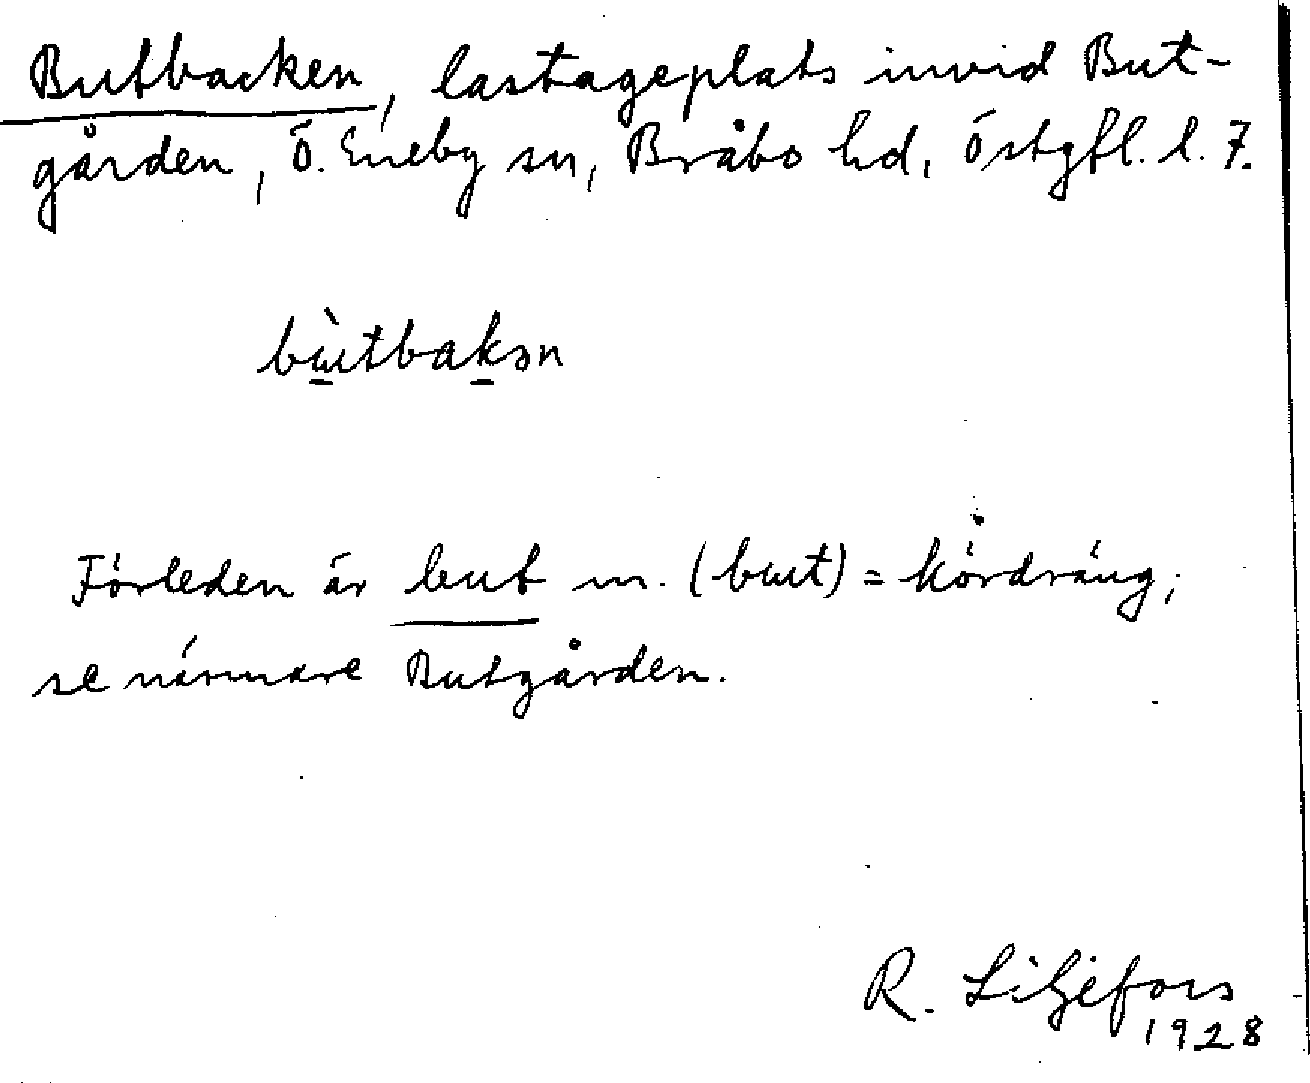 Butbacken, lastageplats invid But-
gården, Ö. Eneby sn, Bråbo hd, Östgtl. l. 7.
bɯ̀tbakən
Förleden är but m. (bɯt) = kördräng;
se närmare Butgården.
R. Liljefors
1928